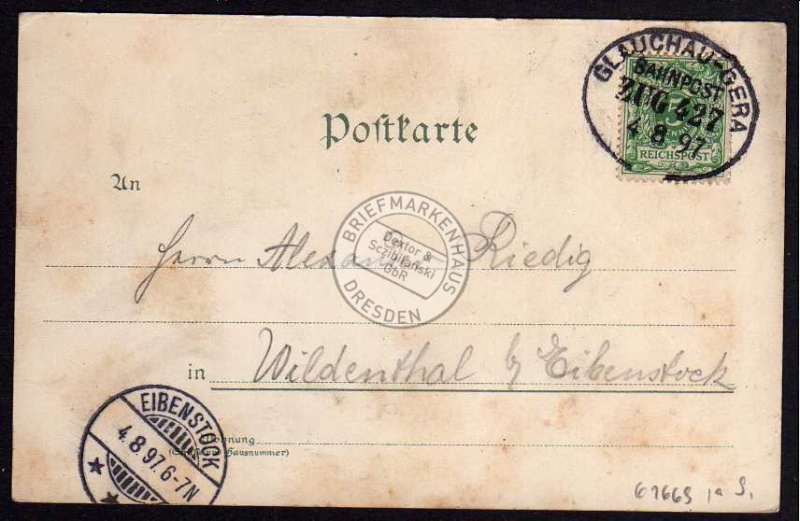 GLAUCHAU-GERA
BAHNPOST
ZUG 427
4 8 97
5
REICHSPOST
Postkarte
An
Herrn Alexander Riedig
BRIEFMARKENHAUS
Dextor &
GbR
DRESDEN
in Wildenthal b/ Eibenstock
Wohnung
(Straße und Hausnummer)
EIBENSTOCK
4.8.97.6-7N
61669 1a S.